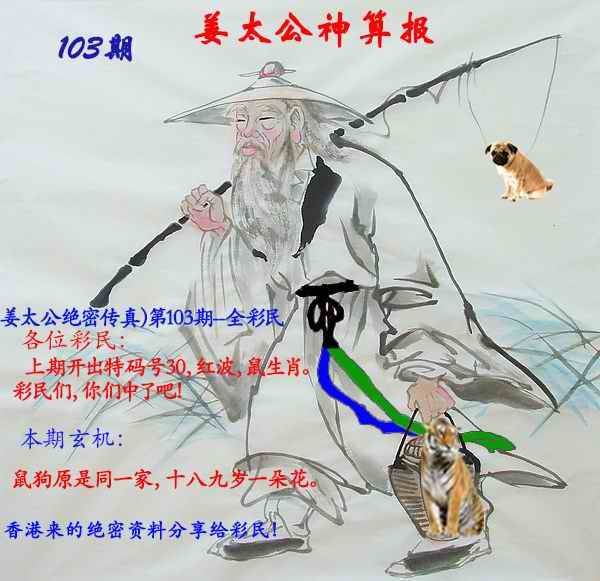 姜太公神算报
103期
姜太公绝密传真)第103期--全彩民
各位彩民:
上期开出特码号30,红波,鼠生肖。
彩民们,你们中了吧!
本期玄机:
鼠狗原是同一家,十八九岁一朵花。
香港来的绝密资料分享给彩民!